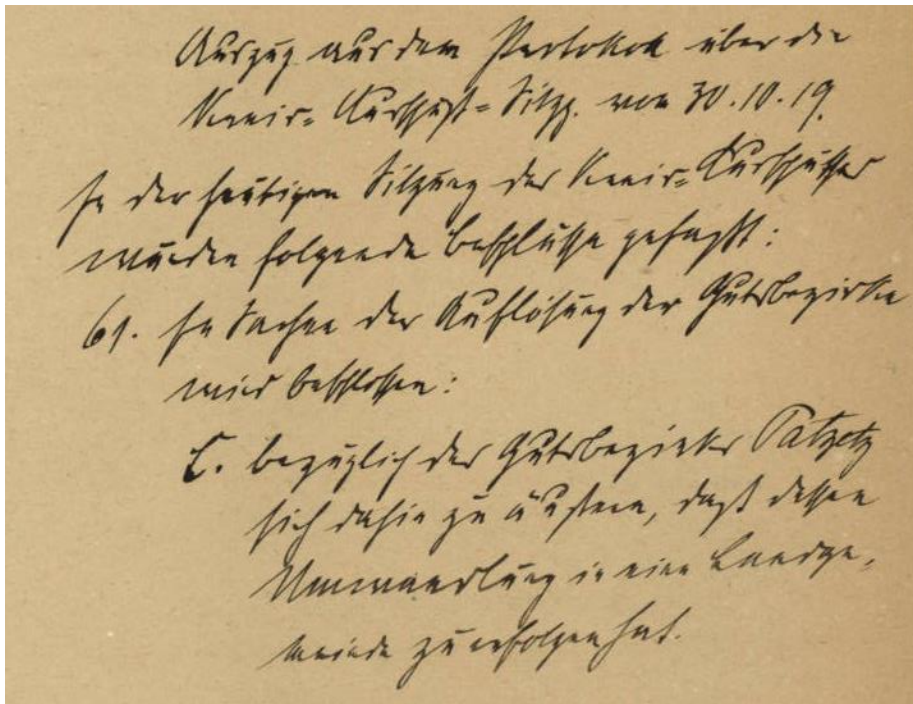 Auszug aus dem Protokoll über die
Kreis-Ausschuß-Sitzg. vom 30.10.19.
In der heutigen Sitzung des Kreis-Ausschusses
wurden folgende Beschlüsse gefaßt:
61. In Sachen der Auflösung der Gutsbezirke
wird beschlossen:
bezüglich des Gutsbezirkes Patzetz
sich dahin zu äußern, daß dessen
Umwandlung in eine Landge-
meinde zu erfolgen hat.